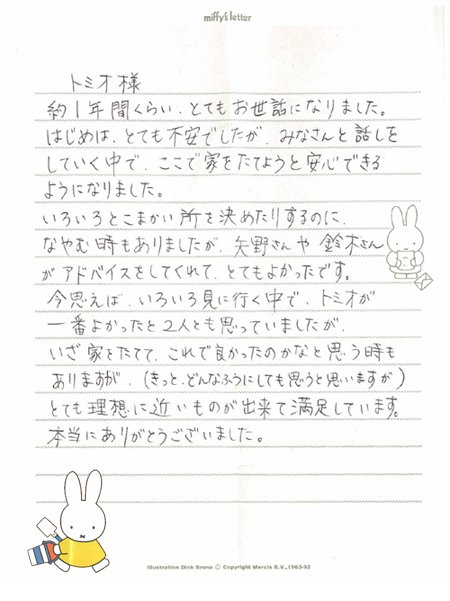 miffy's letter
トミオ様
約1年間くらい、とてもお世話になりました。
はじめは、とても不安でしたが、みなさんと話しを
していく中で、ここで家をたてようと安心できる
ようになりました。
いろいろとこまかい所を決めたりするのに、
なやむ時もありましたが、矢野さんや鈴木さん
がアドバイスをしてくれて、とてもよかったです。
今思えば、いろいろ見に行く中で、トミオが
一番よかったと2人とも思っていましたが、
いざ家をたてて、これで良かったのかなと思う時も
ありますが、(きっと、どんなふうにしても思うと思いますが)
とても理想に近いものが出来て満足しています。
本当にありがとうございました。
Illustration Dick Bruna © Copyright Mercis B.V.,1963-92